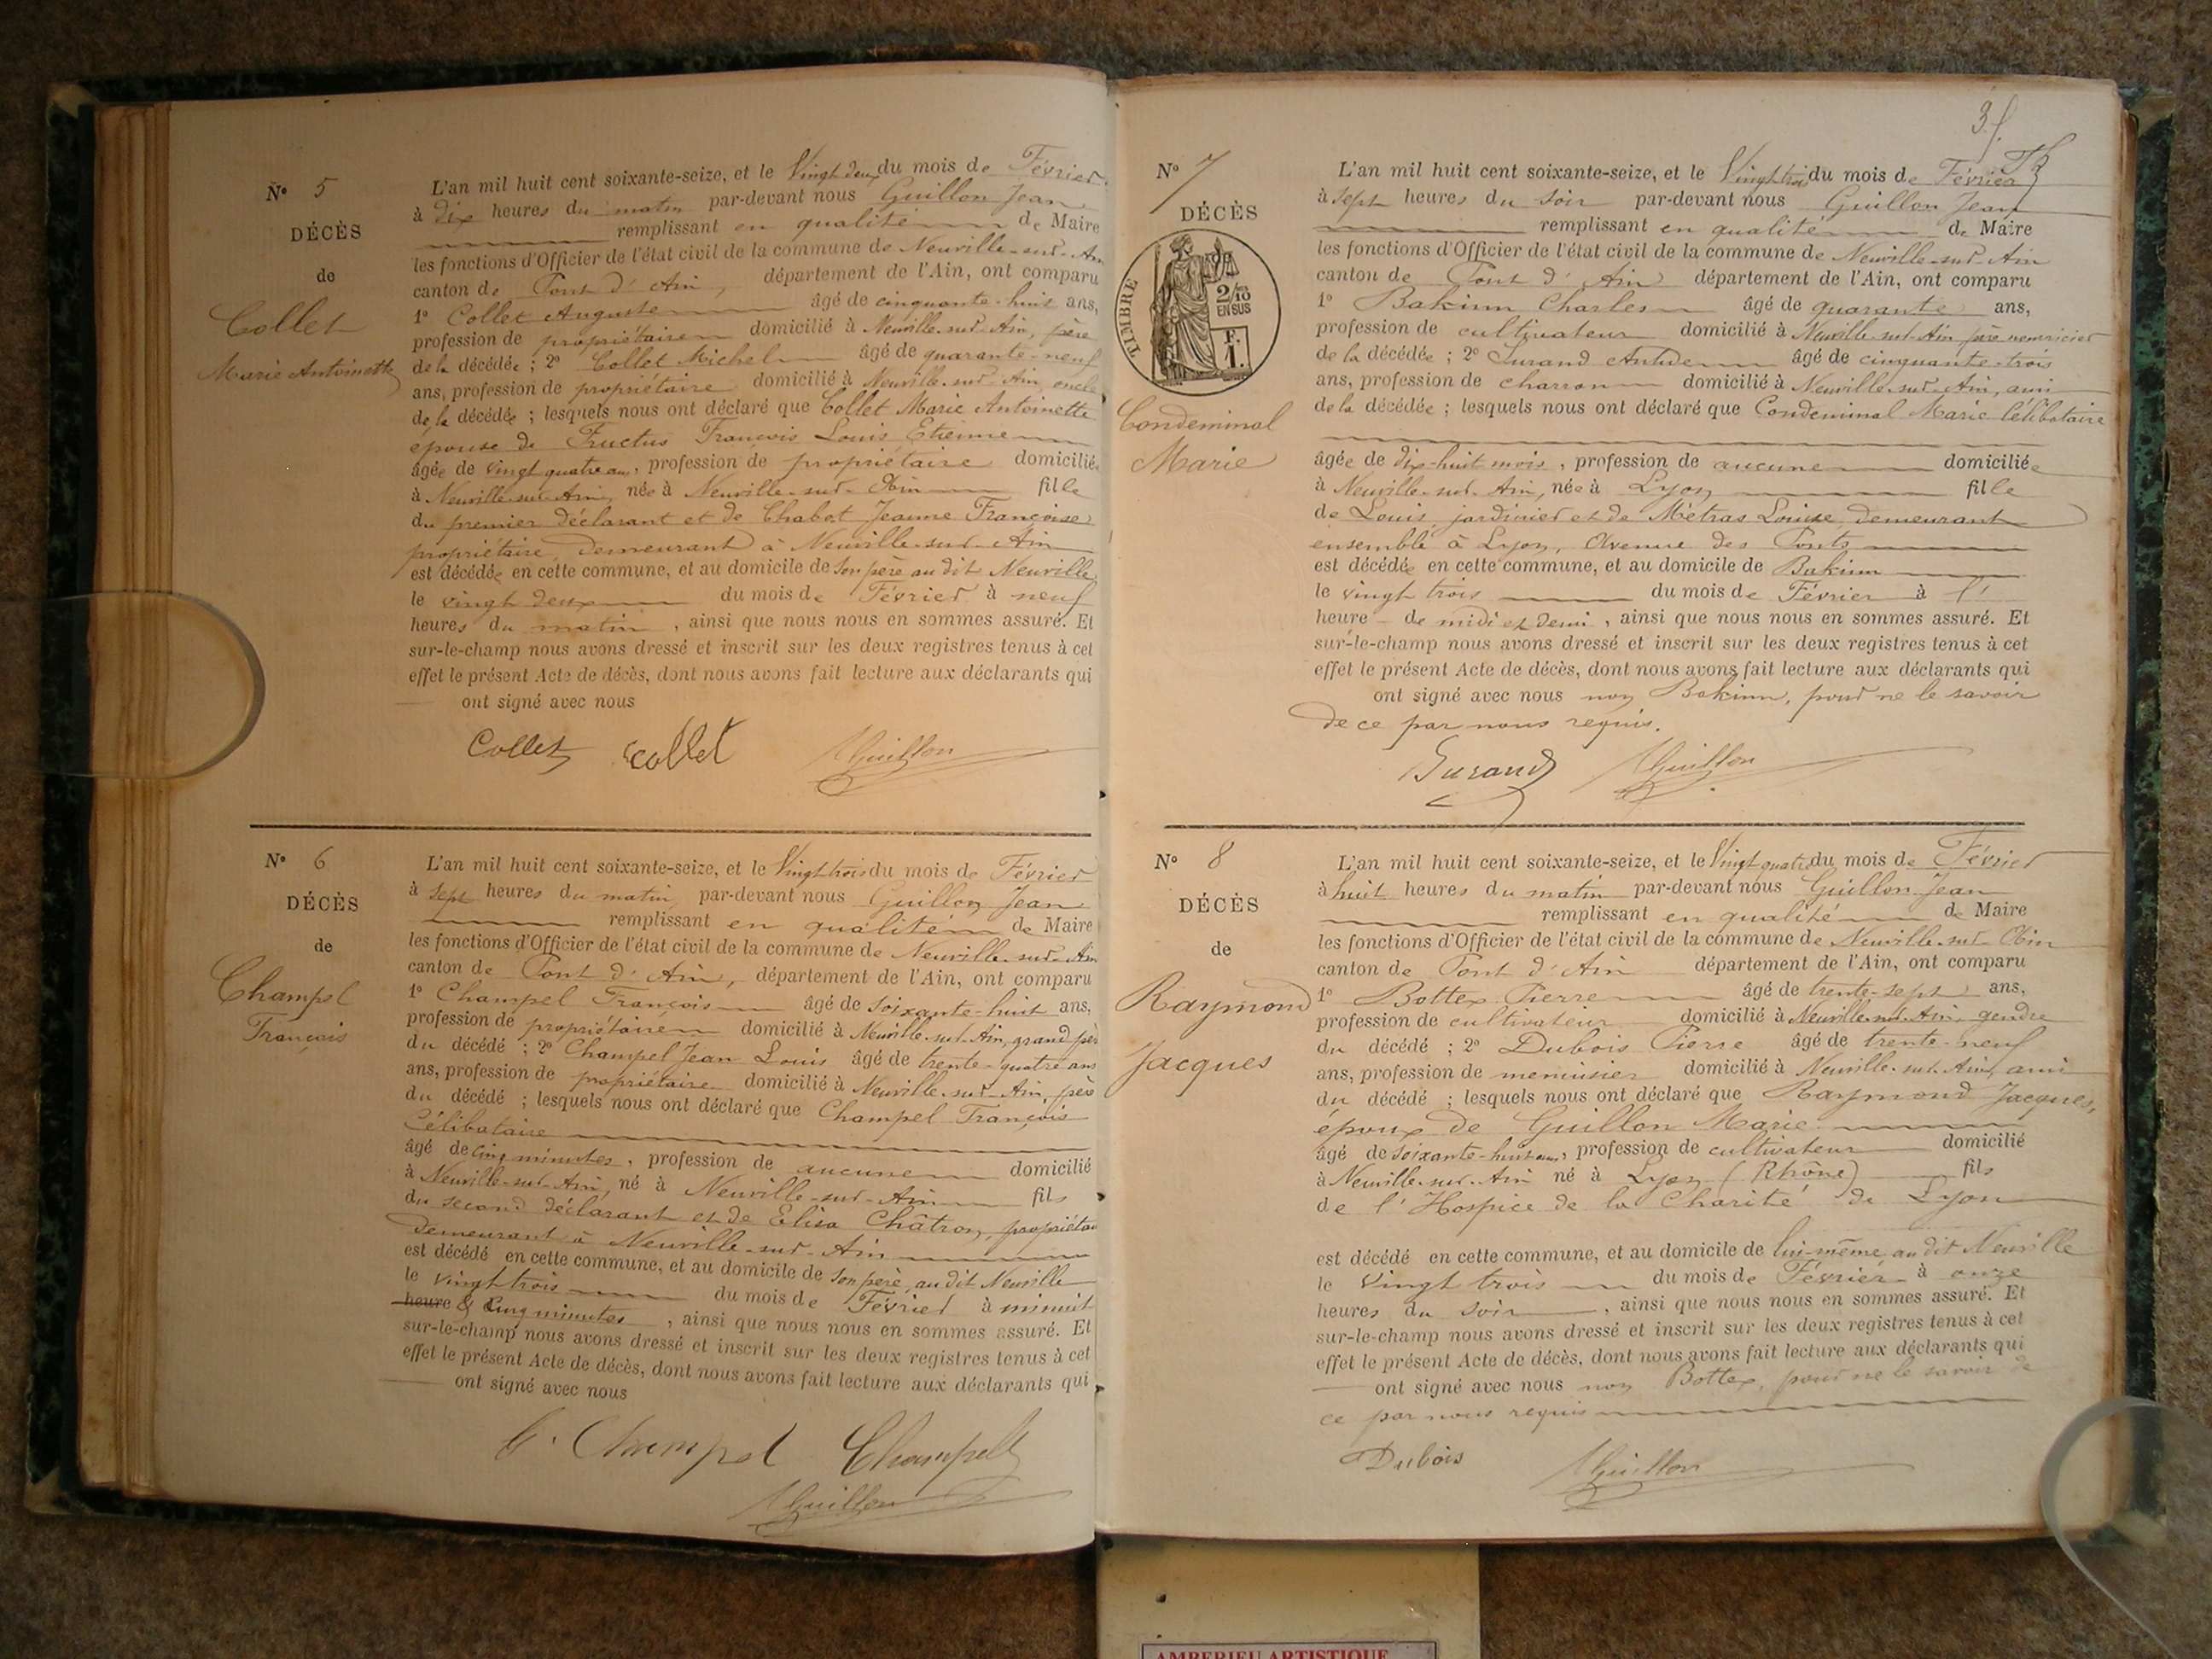 N° 5
DÉCÈS
de
Collet
Marie Antoinette
L'an mil huit cent soixante-seize, et le Vingt deux du mois de Février
à dix heures du matin par-devant nous Guillon Jean
remplissant en qualité de Maire
les fonctions d'Officier de l'état civil de la commune de Neuville-sur-Ain
canton de Pont d'Ain, département de l'Ain, ont comparu
1° Collet Auguste âgé de cinquante-huit ans,
profession de propriétaire domicilié à Neuville-sur-Ain, père
de la décédée ; 2° Collet Michel âgé de quarante-neuf
ans, profession de propriétaire domicilié à Neuville-sur-Ain, oncle
de la décédée ; lesquels nous ont déclaré que Collet Marie Antoinette
épouse de Fructus François Louis Etienne
âgée de vingt quatre ans, profession de propriétaire domiciliée
à Neuville-sur-Ain, née à Neuville-sur-Ain fille
du premier déclarant et de Chabot Jeanne Françoise
propriétaire, demeurant à Neuville-sur-Ain
est décédée en cette commune, et au domicile de son père au dit Neuville
le vingt deux du mois de Février à neuf
heures du matin, ainsi que nous nous en sommes assuré. Et
sur-le-champ nous avons dressé et inscrit sur les deux registres tenus à cet
effet le présent Acte de décès, dont nous avons fait lecture aux déclarants qui
ont signé avec nous
Collet Collet Guillon
N° 6
DÉCÈS
de
Champel
François
L'an mil huit cent soixante-seize, et le Vingt trois du mois de Février
à sept heures du matin, par-devant nous Guillon Jean
remplissant en qualité de Maire
les fonctions d'Officier de l'état civil de la commune de Neuville-sur-Ain
canton de Pont d'Ain, département de l'Ain, ont comparu
1° Champel François âgé de soixante-huit ans,
profession de propriétaire domicilié à Neuville-sur-Ain, grand père
du décédé ; 2° Champel Jean Louis âgé de trente-quatre ans
ans, profession de propriétaire domicilié à Neuville-sur-Ain, père
du décédé ; lesquels nous ont déclaré que Champel François
Célibataire
âgé de cinq minutes, profession de aucune domicilié
à Neuville-sur-Ain, né à Neuville-sur-Ain fils
du second déclarant et de Elisa Châtron, propriétaire
demeurant à Neuville-sur-Ain
est décédé en cette commune, et au domicile de son père, au dit Neuville
le vingt trois du mois de Février à minuit
heure & cinq minutes, ainsi que nous nous en sommes assuré. Et
sur-le-champ nous avons dressé et inscrit sur les deux registres tenus à cet
effet le présent Acte de décès, dont nous avons fait lecture aux déclarants qui
ont signé avec nous
Champel Champel
Guillon
3
N° 7
DÉCÈS
TIMBRE
2/10
EN SUS
F.
1.
Condeminal
Marie
L'an mil huit cent soixante-seize, et le Vingt trois du mois de Février
à sept heures du soir par-devant nous Guillon Jean
remplissant en qualité de Maire
les fonctions d'Officier de l'état civil de la commune de Neuville-sur-Ain
canton de Pont d'Ain département de l'Ain, ont comparu
1° Bakinn Charles âgé de quarante ans,
profession de cultivateur domicilié à Neuville-sur-Ain père nourricier
de la décédée ; 2° Durand âgé de cinquante-trois
ans, profession de charron domicilié à Neuville-sur-Ain, ami
de la décédée ; lesquels nous ont déclaré que Condeminal Marie Célibataire
âgée de dix-huit mois, profession de aucune domiciliée
à Neuville-sur-Ain, née à Lyon fille
de Louis, jardinier et de Métras Louise demeurant
ensemble à Lyon, Avenue des Ponts
est décédée en cette commune, et au domicile de Bakinn
le vingt trois du mois de Février à l'
heure de midi et demi, ainsi que nous nous en sommes assuré. Et
sur-le-champ nous avons dressé et inscrit sur les deux registres tenus à cet
effet le présent Acte de décès, dont nous avons fait lecture aux déclarants qui
ont signé avec nous non Bakinn, pour ne le savoir
de ce par nous requis.
Durand Guillon
N° 8
DÉCÈS
de
Raymond
Jacques
L'an mil huit cent soixante-seize, et le Vingt quatre du mois de Février
à huit heures du matin par-devant nous Guillon Jean
remplissant en qualité de Maire
les fonctions d'Officier de l'état civil de la commune de Neuville-sur-Ain
canton de Pont d'Ain département de l'Ain, ont comparu
1° Bottex Pierre âgé de trente-sept ans,
profession de cultivateur domicilié à Neuville-sur-Ain, gendre
du décédé ; 2° Dubois Pierre âgé de trente-neuf
ans, profession de menuisier domicilié à Neuville-sur-Ain, ami
du décédé ; lesquels nous ont déclaré que Raymond Jacques,
époux de Guillon Marie
âgé de soixante-huit ans, profession de cultivateur domicilié
à Neuville-sur-Ain né à Lyon (Rhône) fils
de l'Hospice de la Charité de Lyon
est décédé en cette commune, et au domicile de lui-même au dit Neuville
le vingt trois du mois de Février à onze
heures du soir, ainsi que nous nous en sommes assuré. Et
sur-le-champ nous avons dressé et inscrit sur les deux registres tenus à cet
effet le présent Acte de décès, dont nous avons fait lecture aux déclarants qui
ont signé avec nous non Bottex, pour ne le savoir de
ce par nous requis
Dubois Guillon
AMBERIEU ARTISTIQUE